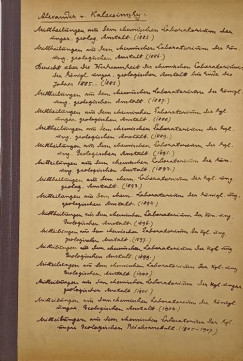 Alexander v. Kalecsinszky.
Mittheilungen aus dem chemischen Laboratorium der
ung. geolog. Anstalt. (1883)
Mittheilungen aus dem chemischen Laboratorium der Kön.
ung. geologischen Anstalt. (1885.)
Bericht über die
Königl. ungar. geologischen Anstalt bis Ende des
Jahres 1885. (1885)
Mittheilungen aus dem chemischen Laboratorium der Königl.
ung. geologischen Anstalt.
Mittheilungen aus dem chemischen Laboratorium der Kgl
ungar. geologischen Anstalt.
Mittheilungen aus dem chemischen Laboratorium der Kgl.
ung. geologischen Anstalt.
Mittheilungen aus dem chemischen Laboratorium der Königl.
ung. Geologischen Anstalt.
Mittheilungen aus dem chemischen Laboratorium der Kön.
ung. geologischen Anstalt.
Mittheilungen aus dem chem. Laboratorium der Königl.
ung. geologischen Anstalt. (1893.)
Mittheilungen aus dem chemischen Laboratorium der Königl. ung.
geologischen Anstalt.
Mittheilungen aus dem chemischen Laboratorium der Kön. ung
Geologischen Anstalt.
Mitteilungen aus dem chemischen Laboratorium der Kgl. ung
geologischen Anstalt.
Mitteilungen aus dem chemischen Laboratorium der Kgl. ung
Geologischen Anstalt.
Mitteilungen aus dem chemischen Laboratorium der Kgl. ung.
Geologischen Anstalt.
Mitteilungen aus dem chemischen Laboratorium der Kgl. ungar
geologischen Anstalt.
Mitteilungen aus dem chemischen Laboratorium der Königl
ungar. Geologischen Anstalt.
Mitteilungen aus dem chemischen Laboratorium der Kgl
ungar. Geologischen Reichsanstalt.